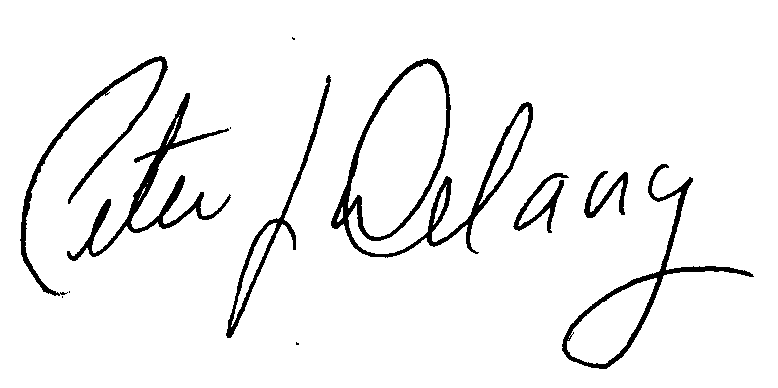 Peter J Delany